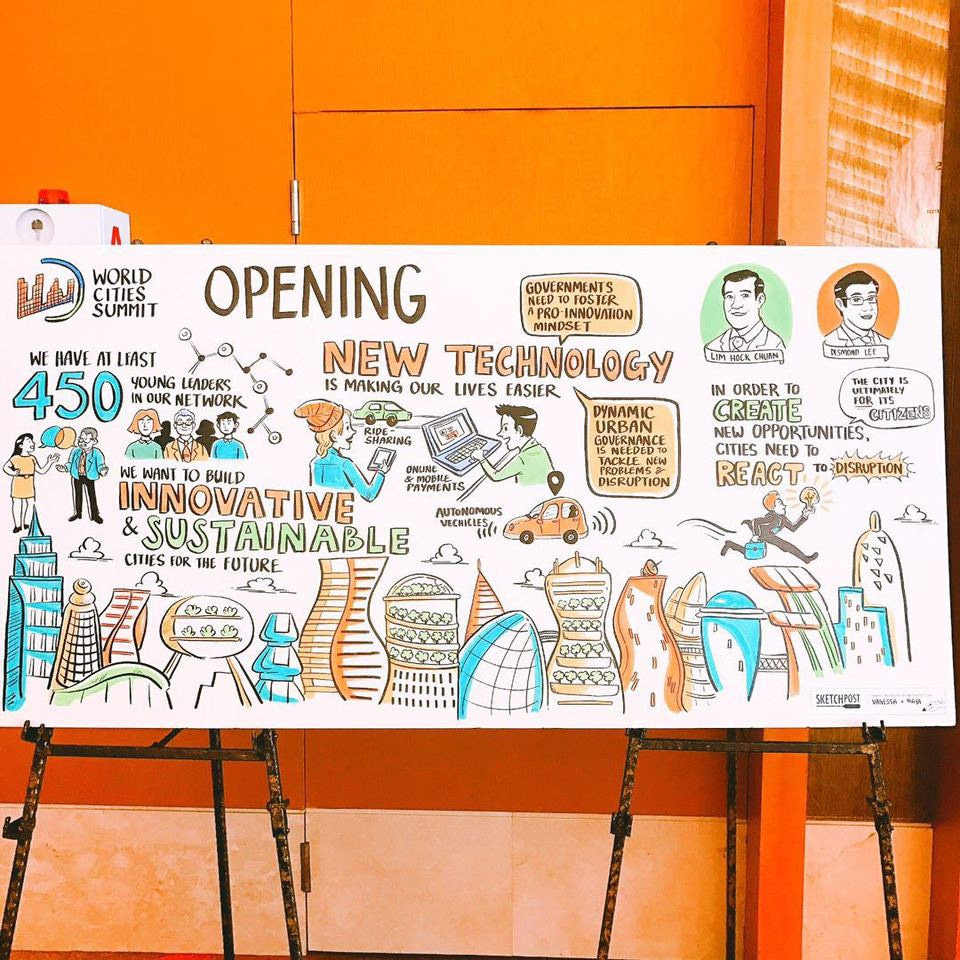 WORLD
CITIES
SUMMIT
OPENING
WE HAVE AT LEAST
450
YOUNG LEADERS
IN OUR NETWORK
WE WANT TO BUILD
INNOVATIVE
& SUSTAINABLE
CITIES FOR THE FUTURE
GOVERNMENTS
NEED TO FOSTER
A PRO-INNOVATION
MINDSET
NEW TECHNOLOGY
IS MAKING OUR LIVES EASIER
RIDE-
SHARING
ONLINE
& MOBILE
PAYMENTS
AUTONOMOUS
VECHICLES
DYNAMIC
URBAN
GOVERNANCE
IS NEEDED TO
TACKLE NEW
PROBLEMS &
DISRUPTION
LIM HOCK CHUAN
DESMOND LEE
IN ORDER TO
CREATE
NEW OPPORTUNITIES,
CITIES NEED TO
REACT TO DISRUPTION
THE CITY IS
ULTIMATELY
FOR ITS
CITIZENS
SKETCHPOST
VANESSA +
A